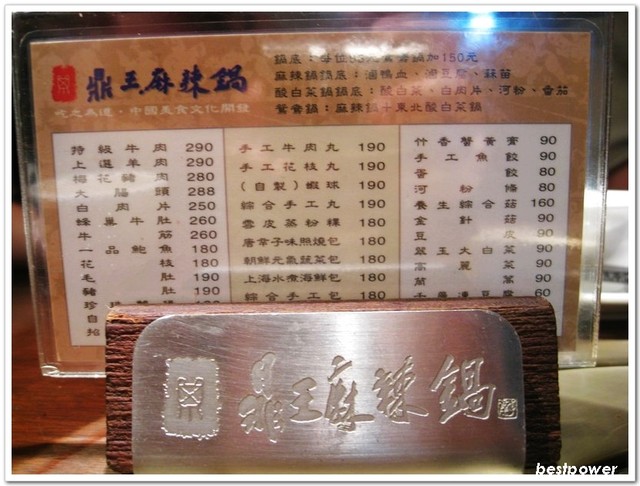 鼎王麻辣鍋
吃之為道．中國美食文化開發
鍋底：每位
鴛鴦鍋加150元
麻辣鍋鍋底：滷鴨血、滷豆腐、蒜苗
酸白菜鍋鍋底：酸白菜、白肉片、河粉、番茄
鴛鴦鍋：麻辣鍋＋東北酸白菜鍋
特級牛肉 290
上選羊肉 290
梅花豬肉 280
大腸頭 288
白肉片 250
蜂巢牛肚 260
牛筋 260
一品鮑魚 180
花枝 180
毛肚 190
豬肚 190
珍
自
手工牛肉丸 190
手工花枝丸 190
（自製）蝦球 190
綜合手工丸 190
雲皮蒸粉粿 180
唐辛子味照燒包 180
朝鮮元氣蔬菜包 180
上海水煮海鮮包 180
綜合手工包 180
竹香蟹黃膏 90
手工魚餃 90
蛋餃 80
河粉條 80
養生綜合菇 160
金針菇 90
豆皮 90
翠玉大白菜 90
高麗菜 90
茼萵 90
千層凍豆腐 60
鼎王麻辣鍋
bestpower